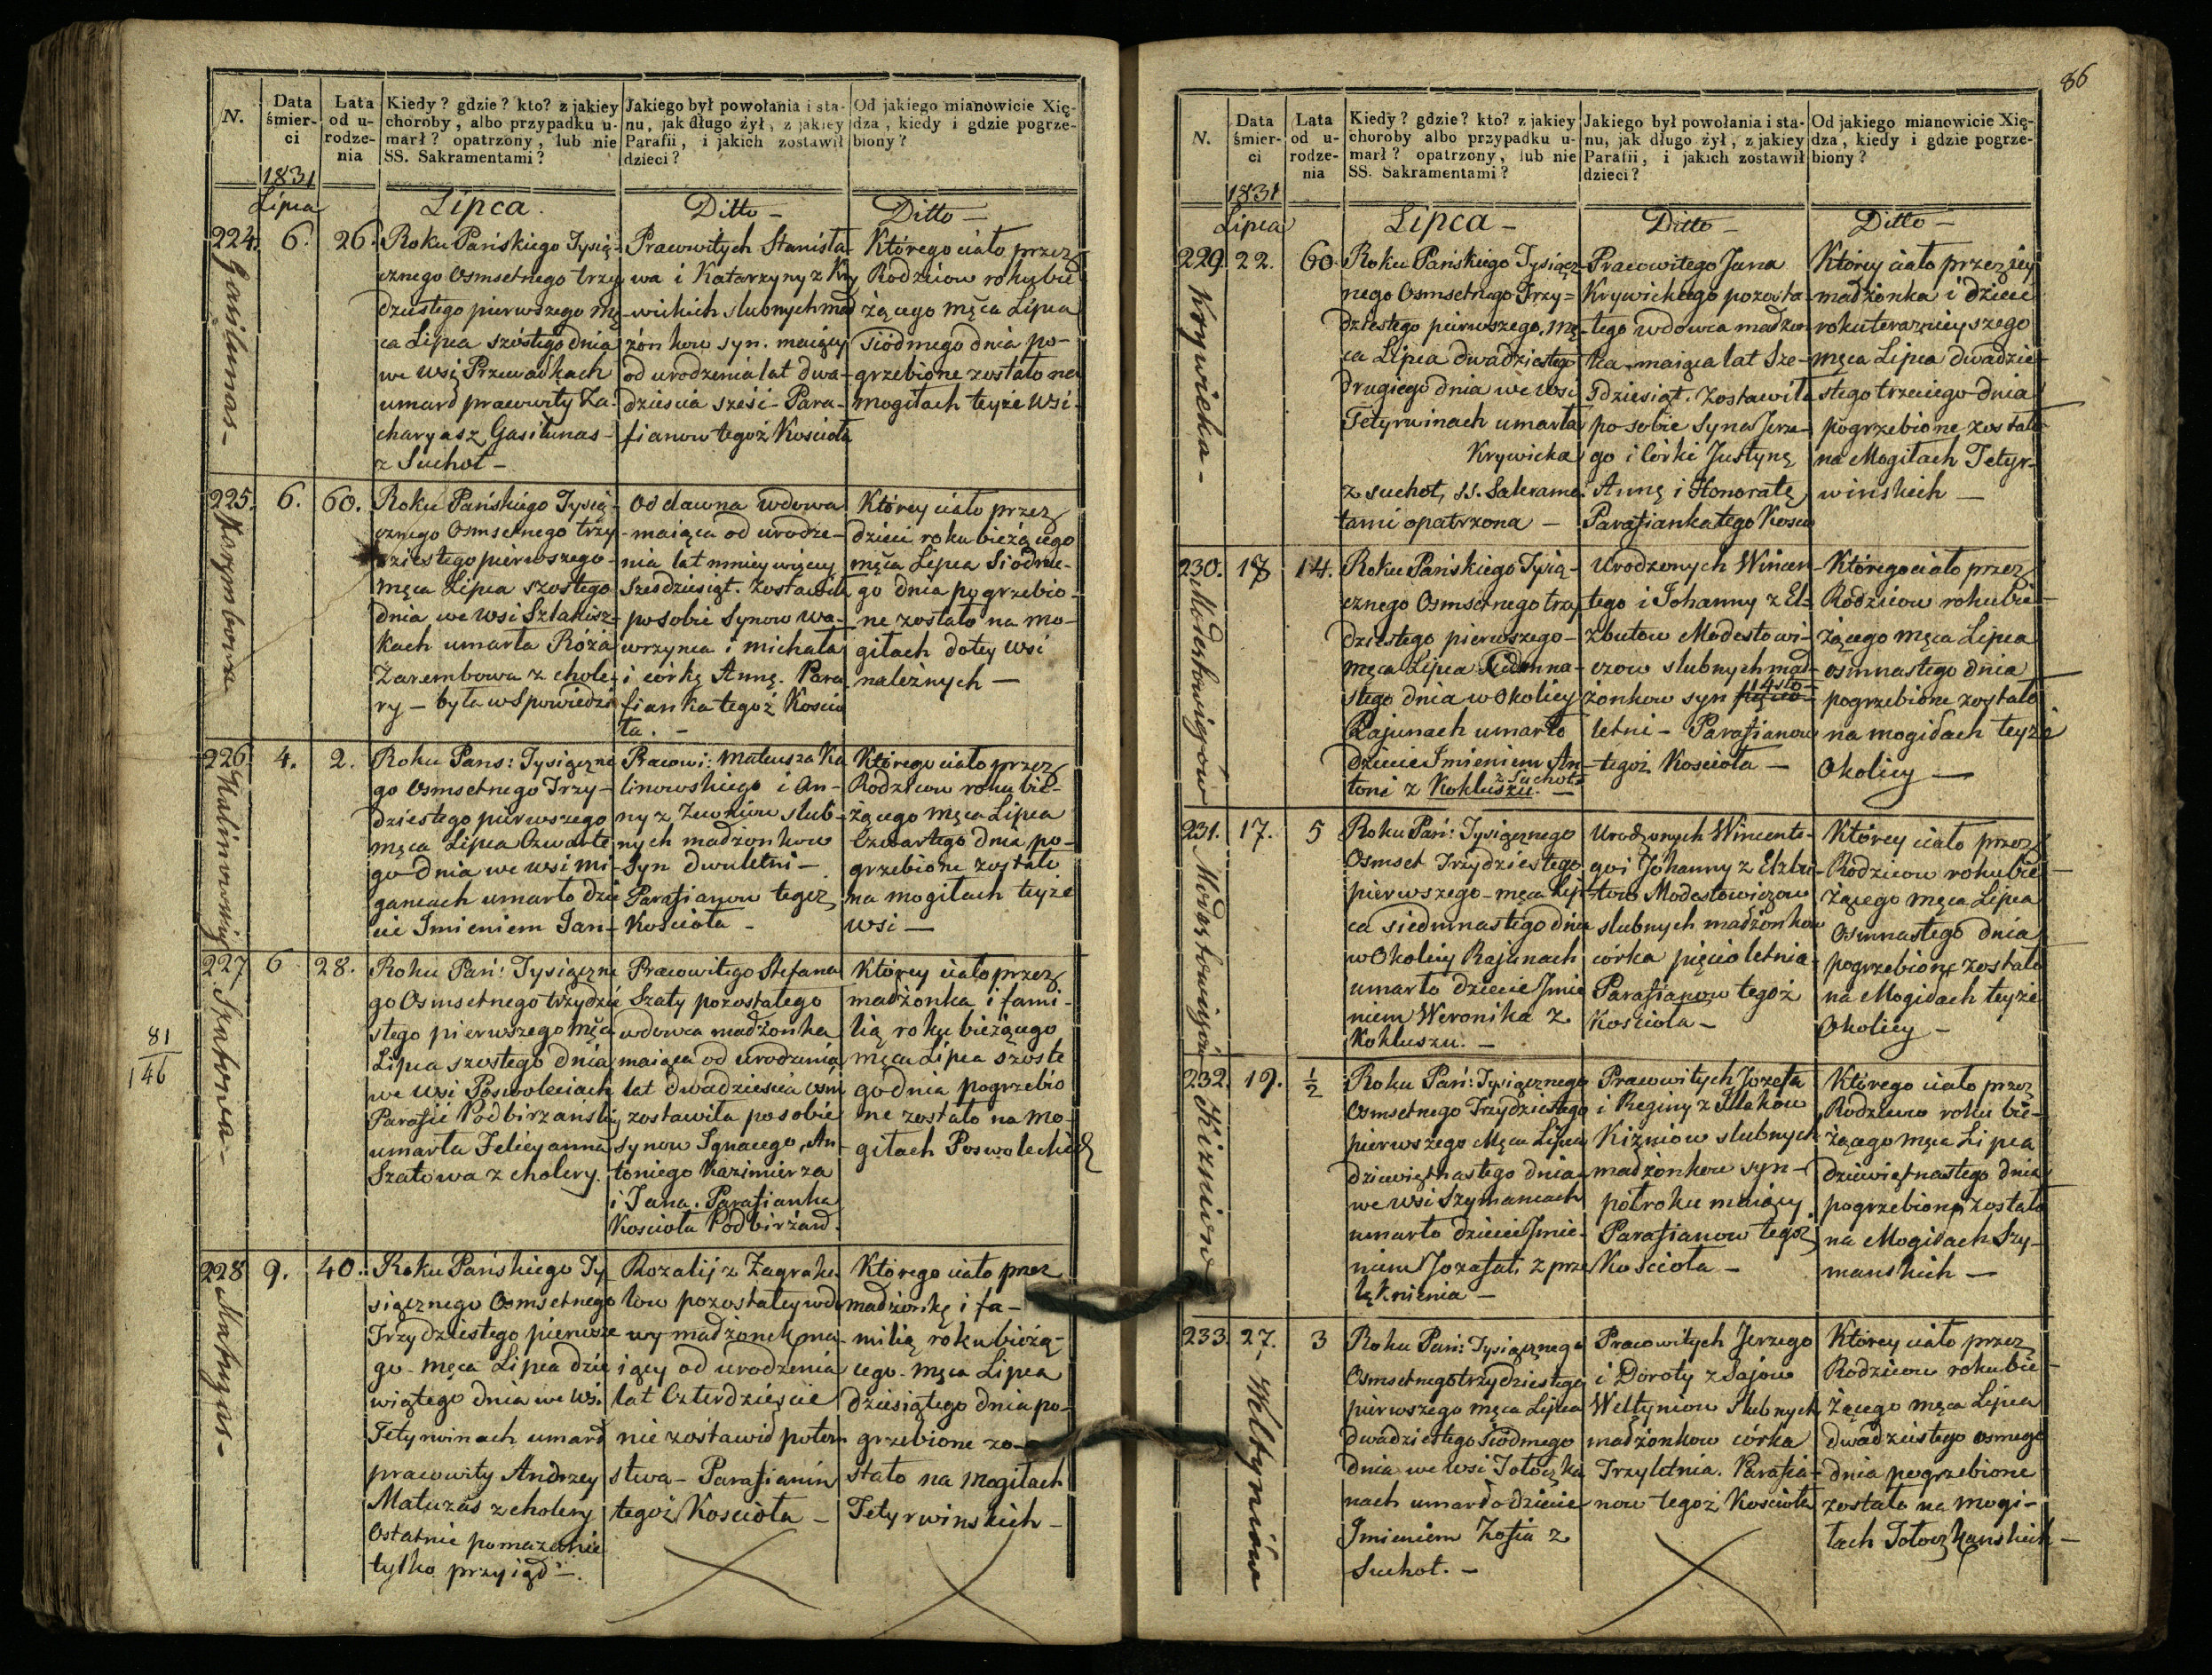 N.
Data śmier-
ci
1831
Lata
od u-
rodze-
nia
Kiedy? gdzie? kto? z jakiey
choroby, albo przypadku u-
marł? opatrzony, lub nie
SS. Sakramentami?
Jakiego był powołania i sta-
nu, jak długo żył, z jakiey
Parafii, i jakich zostawił
dzieci?
Od jakiego mianowicie Xię-
dza, kiedy i gdzie pogrze-
biony?
Lipca
Lipca.
Ditto -
Ditto -
224. 6. 26.
Gasiłunas -
Roku Pańskiego Tysią-
cznego Osmsetnego trzy
dziestego pierwszego mę-
ca Lipca szóstego dnia
we wsi Przewadkach
umarł pracowity Za-
charyasz Gasiłunas -
z Suchot -
Pracowitych Stanisła-
wa i Katarzyny z Kry
wickich slubnych mał
żonkow syn. maiący
od urodzenia lat dwa-
dzieścia sześć - Para-
fianow tegoż Kościoła
Którego ciało przez
Rodzicow roku bie
żącego męca Lipca
Siódmego dnia po-
grzebione zostało na
mogiłach teyże wsi -
225. 6. 60.
Zarembowa
Roku Pańskiego Tysią-
cznego Osmsetnego trzy
dziestego pierwszego -
męca Lipca szostego
dnia we wsi Szlanisz-
kach umarła Róża
Zarembowa z chole-
ry - była w Spowiedzi
od dawna wdowa
- maiąca od urodze-
nia lat mniey więcey
Szesdziesiąt. Zostawiła
po sobie synow Wa-
wrzynca i michała
i córkę Annę. Para
fianka tegoż Kościo
ła. -
Którey ciało przez
dzieci roku bieżącego
męca Lipca Siódme-
go dnia pogrzebio-
ne zostało na mo-
giłach do tey wsi
należnych -
226. 4. 2.
Kalinowskiy
Roku Pans: Tysiączne
go Osmsetnego Trzy-
dziestego pierwszego
męca Lipca Czwarte
go dnia we wsi mi-
gancach umarło dzie
cie Imieniem Jan -
Pracowi: Mateusza Ka
linowskiego i An-
ny z Zewniow slub-
nych madżonkow
Syn dwuletni -
Parafianow tegoż
Kościoła -
Którego ciało przez
Rodzicow roku bie-
żącego męca Lipca
Czwartego dnia po-
grzebione zostało
na mogiłach teyże
wsi -
81
146
227. 6 28.
Szatowa -
Roku Pań: Tysiączne
go Osmsetnego trzydzie
stego pierwszego męca
Lipca szostego dnia
we wsi Poswoleciach
Parafii Podbirzanskiy
umarła Felicyanna
Szatowa z cholery.
Pracowitego Stefana
Szaty pozostałego
wdowca madżonka
maiąca od urodzenia
lat dwadziescia osm
zostawiła po sobie
synow Ignacego, An-
toniego Kazimierza
i Jana. Parafianka
Kościoła Podbirżansk.
Którey ciało przez
madżonka i fami-
lią roku bieżącego
męca Lipca szoste
go dnia pogrzebio
ne zostało na mo-
giłach Poswoleckich
228 9. 40.
Matuzas -
Roku Pańskiego Ty
siącznego Osmsetnego
Trzydziestego pierwsze
go męca Lipca dzie
wiątego dnia we wsi
Tetyrwinach umarł
pracowity Andrzey
Matuzas z cholery
Ostatnie pomazanie
tylko przyiąd -.
Rozalij z Zagraku
low pozostałey wdo
wy madżonek, ma-
iący od urodzenia
lat Czterdzieście
nie zostawił potom
stwa - Parafianin
tegoż Kościoła -
Którego ciało przez
madżonkę i fa-
milią roku bieżą-
cego męca Lipca
dziesiątego dnia po-
grzebione zo-
stało na mogiłach
Tetyrwinskich -
86
N.
Data
śmier-
ci
1831
Lata
od u-
rodze-
nia
Kiedy? gdzie? kto? z jakiey
choroby albo przypadku u-
marł? opatrzony, lub nie
SS. Sakramentami?
Jakiego był powołania i sta-
nu, jak długo żył, z jakiey
Parafii, i jakich zostawił
dzieci?
Od jakiego mianowicie Xię-
dza, kiedy i gdzie pogrze-
biony?
Lipca
Lipca -
Ditto -
Ditto -
229. 22. 60.
Krywicka -
Roku Pańskiego Tysiącz
nego Osmsetnego Trzy=
dziestego pierwszego, mę-
ca Lipca dwadziestego
drugiego dnia we wsi
Tetyrwinach umarła
Krywicka
z suchot, SS. Sakramen
tami opatrzona -
Pracowitego Jana
Krywickiego pozosta-
łego wdowca madżon
ka maiąca lat Sze-
sdziesiąt. Zostawiła
po sobie syna Jerze-
go i Córki Justynę
Annę i Honoratę,
Parafianka tego Kościo
Którey ciało przez iey
madżonka i dzieci
roku teraznieyszego
męca Lipca dwadzie-
stego trzeciego dnia
pogrzebione zostało
na Mogiłach Tetyr-
winskich -
230. 17 14.
Modestowiczow
Roku Pańskiego Tysią-
cznego Osmsetnego trzy
dziestego pierwszego -
męca Lipca Siedmna-
stego dnia w Okolicy
Rajunach umarło
dziecie Imieniem An-
toni z Kokluszu. z Suchot -
Urodzonych Wincen-
tego i Johanny z El-
zbutow Modestowi-
czow slubnych mad-
żonkow syn pięcio 14sto
letni - Parafianow
tegoż Kościoła -
Którego ciało przez
Rodzicow roku bie-
żącego męca Lipca
osmnastego dnia
pogrzebione zostało
na mogiłach teyże
Okolicy -
231. 17. 5
Modestowiczow
Roku Pań: Tysiącznego
Osmset Trzydziestego
pierwszego męca Lip-
ca siedmnastego dnia
w Okolicy Rajunach
umarło dziecie Imie
niem Weronika z
Kokluszu. -
Urodzonych Wincente-
go i Johanny z Elzbu-
tow Modestowiczow
slubnych madżonkow
córka pięcioletnia
Parafianow tegoż
Kościoła -
Którey ciało przez
Rodzicow roku bie-
żącego męca Lipca
Osmnastego dnia
pogrzebione zostało
na Mogiłach teyże
Okolicy -
232. 19. 1/2
Kizniow
Roku Pań: Tysiącznego
Osmsetnego Trzydziestego
pierwszego Męca Lipca
dziewiętnastego dnia
we wsi Szymancach
umarło dziecie Imie-
niem Jozafat, z prze
lęknienia -
Pracowitych Jozefa
i Reginy z Słakow
Kizniow slubnych
madżonkow syn -
półroku maiący
Parafianow tegoż
Kościoła -
Którego ciało przez
Rodzicow roku bie-
żącego męca Lipca
dziewiętnastego dnia
pogrzebione zostało
na Mogiłach Szy-
manskich -
233. 27. 3
Weltyniow
Roku Pań: Tysiącznego
Osmsetnego trzydziestego
pierwszego męca Lipca
dwadziestego siódmego
dnia we wsi Totoczka
nach umarło dziecie
Imieniem Zofia z
Suchot. -
Pracowitych Jerzego
i Doroty z Sajow
Weltyniow slubnych
madżonkow córka
Trzyletnia. Parafia-
now tegoż Kościoła
Którey ciało przez
Rodzicow roku bie-
żącego męca Lipca
dwadziestego osmego
dnia pogrzebione
zostało na mogi-
łach Totoczkanskich -